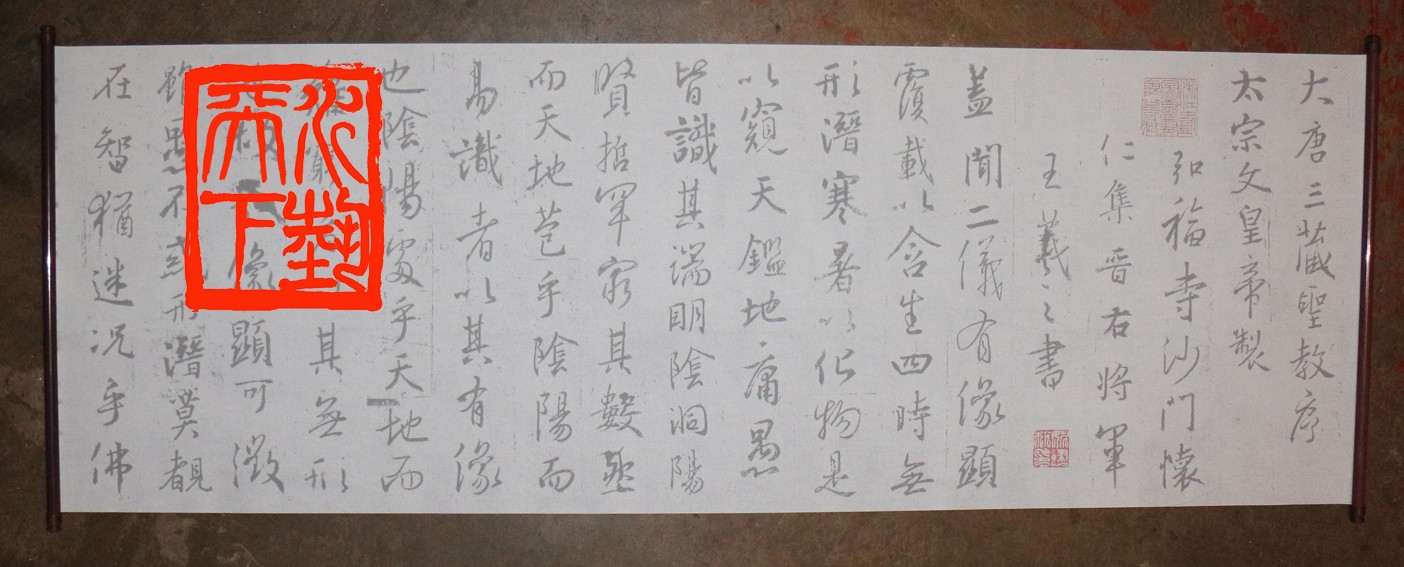 大唐三藏聖教序
太宗文皇帝製
弘福寺沙門懷
仁集晉右將軍
王羲之書
蓋聞二儀有像顯
覆載以含生四時無
形潛寒暑以化物是
以窺天鑑地庸愚
皆識其端明陰洞陽
賢哲罕窮其數然
而天地苞乎陰陽而
易識者以其有像
也陰陽處乎天地而
難其無形
故像顯可徵
雖愚不惑形潛莫覩
在智猶迷況乎佛
藝天下